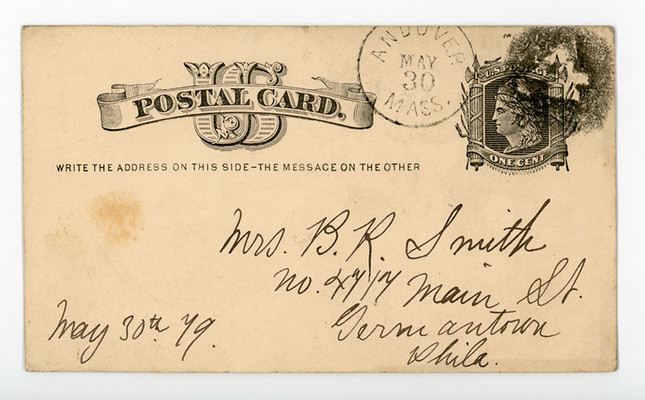 US
POSTAL CARD.
WRITE THE ADDRESS ON THIS SIDE-THE MESSAGE ON THE OTHER
ANDOVER
MAY
30
MASS.
U.S. POSTAGE
ONE CENT
Mrs. B. R. Smith
No. 4717 Main St.
Germantown
Phila.
May 30th 79.